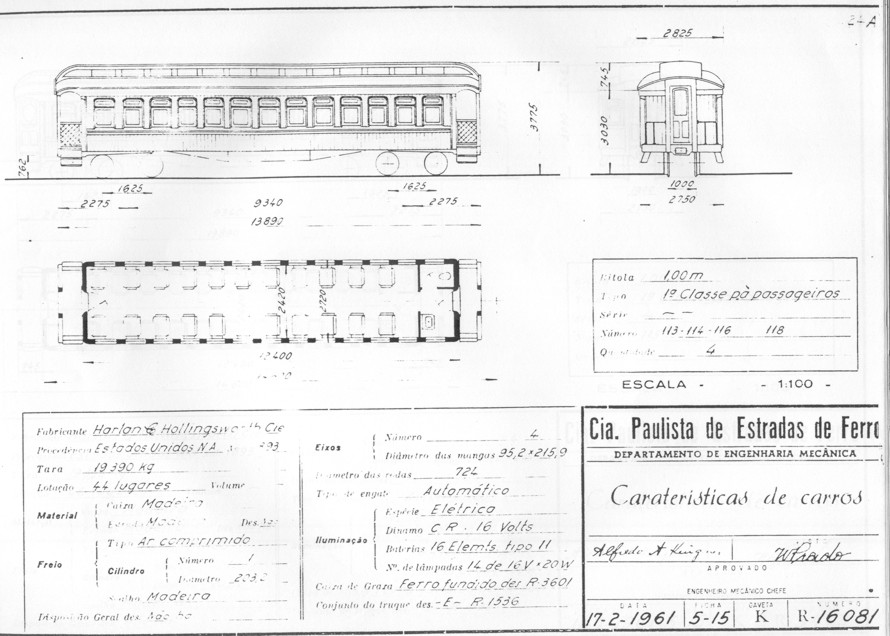 24 A
2825
745
3775
3030
762
1625
1625
1000
2275
9340
2275
2750
13890
2420
1720
12400
Bitola 1,00m
Tipo 1ª Classe pª passageiros
Série — —
Número 113-114-116 118
Quantidade 4
ESCALA - - 1:100 -
Fabricante Harlan & Hollingsworth Cie
Procedência Estados Unidos N.A.
Tara 19 390 kg
Lotação 44 lugares Volume
Material
Caixa Madeira
Estrado Des.
Freio
Tipo Ar comprimido
Cilindro
Número 1
Diâmetro 203,2
Madeira
Disposição Geral des.
Eixos
Número 4
Diâmetro das mangas 95,2 x 215,9
Diâmetro das rodas 724
Tipo de engate Automático
Iluminação
Espécie Elétrica
Dínamo C R - 16 Volts
Baterias 16 Elemts tipo 11
Nº. de lâmpadas 14 de 16V x 20W
Caixa de Graxa Ferro fundido des. R.3601
Conjunto do truque des. -E- R-1536
Cia. Paulista de Estradas de Ferro
DEPARTAMENTO DE ENGENHARIA MECÂNICA
Carateristicas de carros
APROVADO
ENGENHEIRO MECÂNICO CHEFE
DATA FICHA GAVETA NÚMERO
17-2-1961 5-15 K R-16081